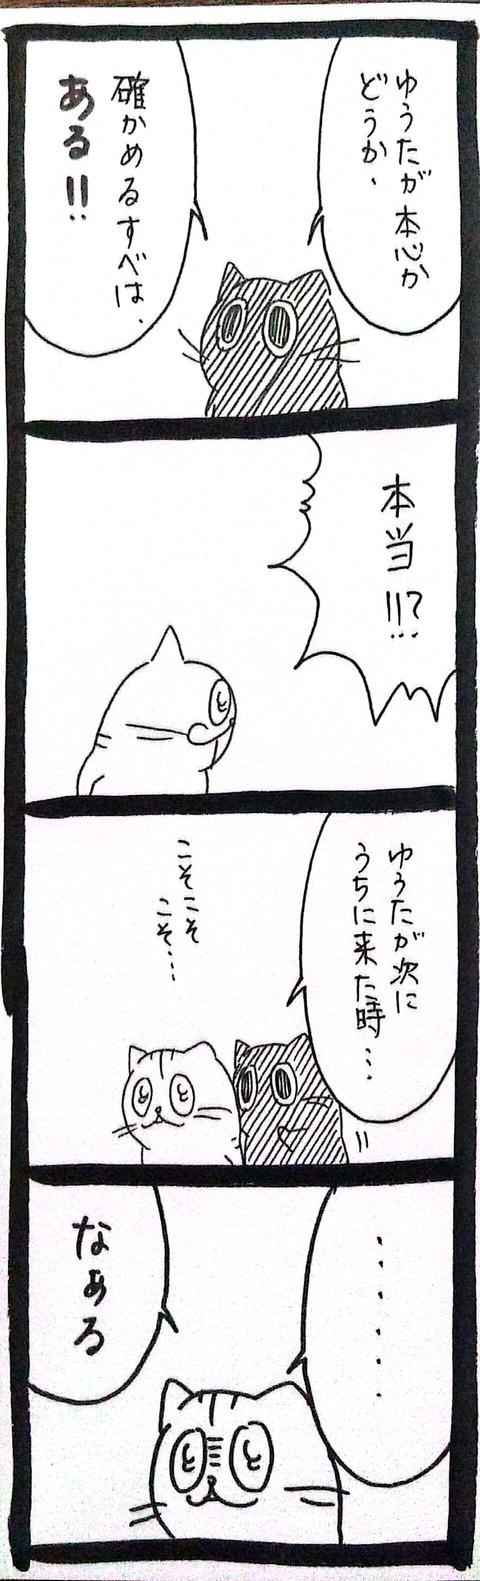 ゆうたが本心か
どうか、
確かめるすべは、
ある!!
本当!!?
ゆうたが次に
うちに来た時…
こそこそ
こそ…
・・・・・・・
なぁる